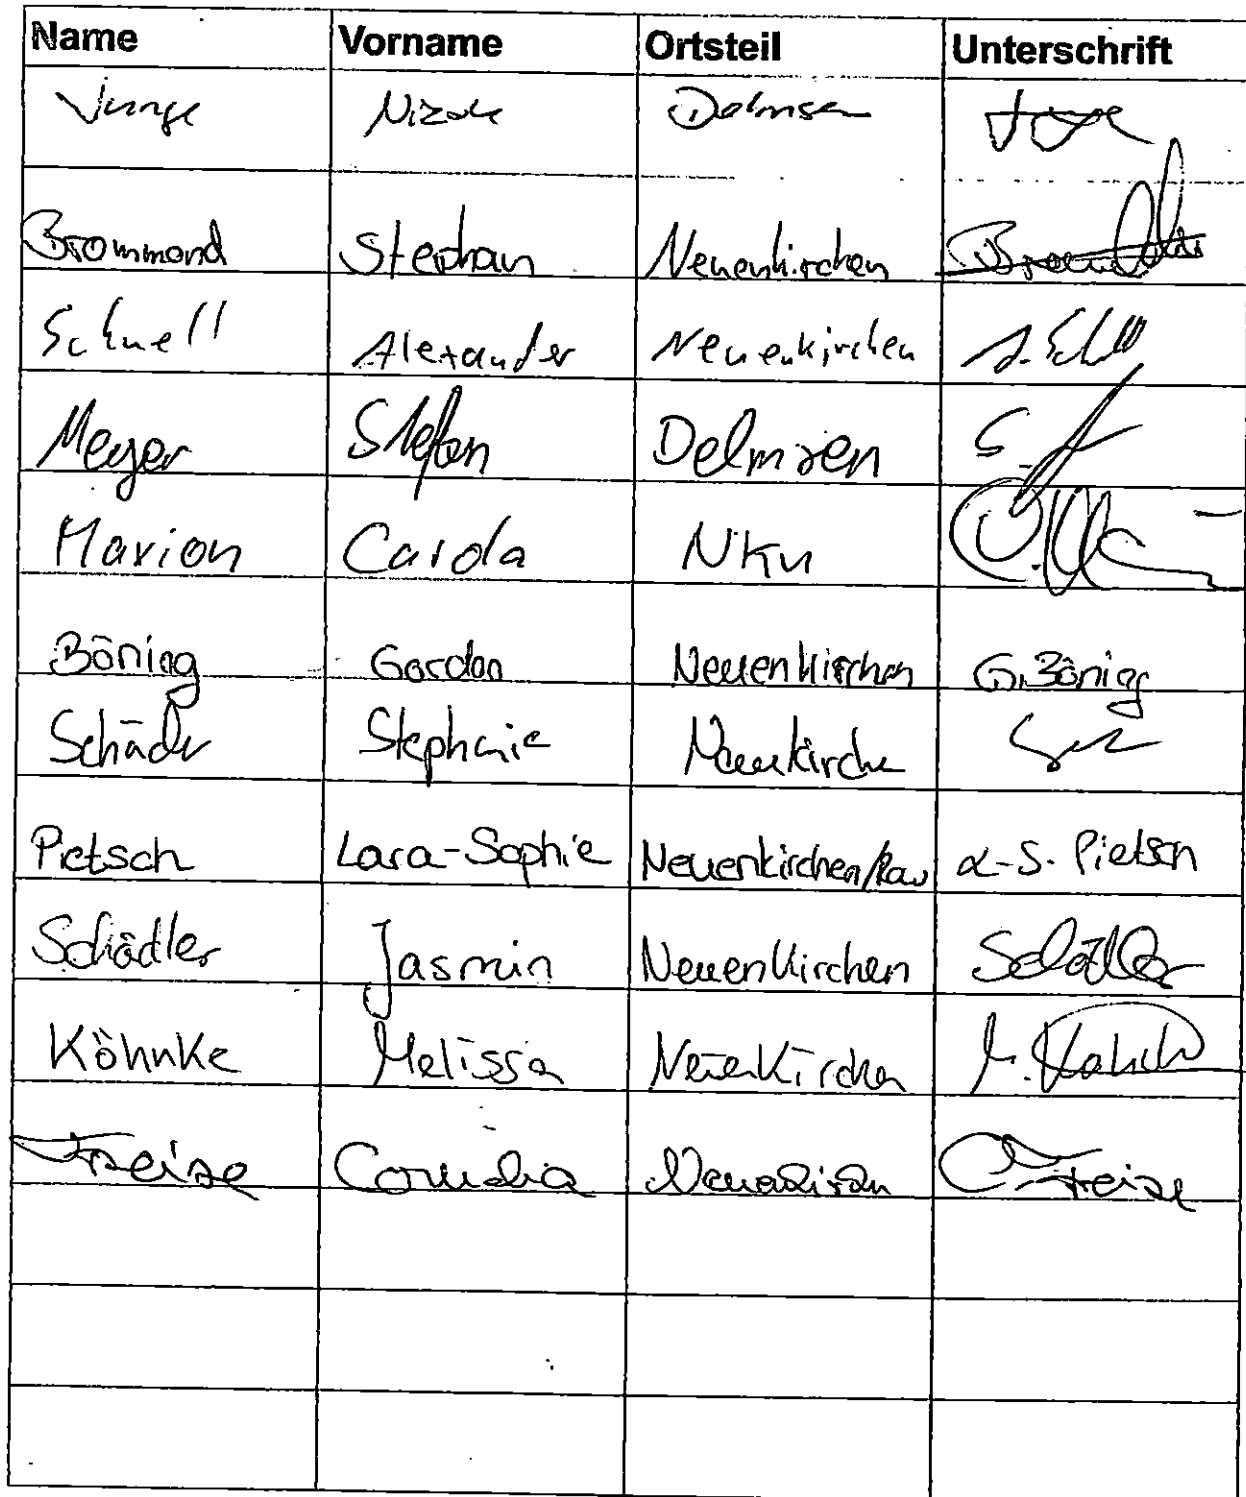 Name Vorname Ortsteil Unterschrift
Junge Nizole Delmsen
Brommond Stephan Neuenkirchen
Schnell Alexander Neuenkirchen A. Schnell
Meyer Stefan Delmsen
Marion Carola NKn
Böning Gordon Neuenkirchen G. Böning
Stephanie Neuenkirchen
Pietsch Lara-Sophie Neuenkirchen/Rav L-S. Pietsch
Schädler Jasmin Neuenkirchen Schädler
Köhnke Melissa Neuenkirchen M. Köhnke
Freise Cornelia Neuenkirchen C. Freise